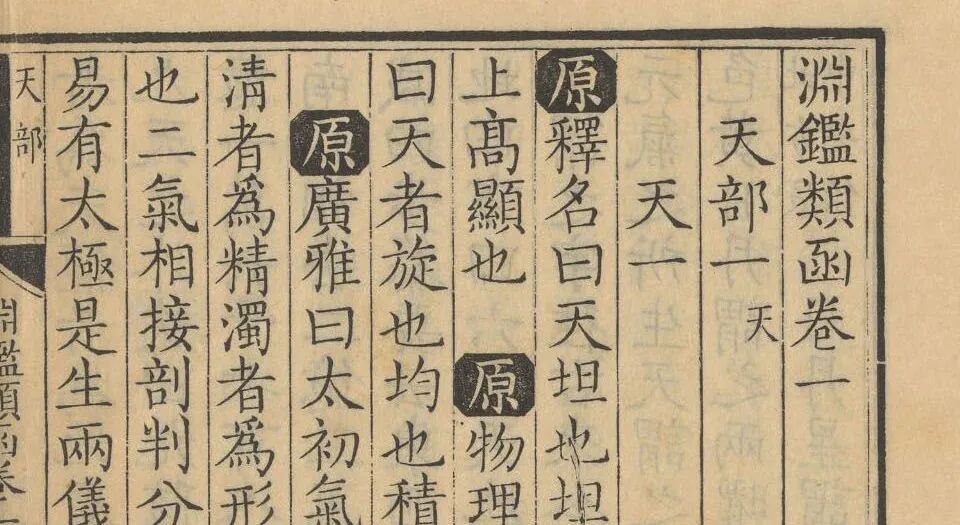 淵鑑類函卷一
天部一 天
天一
原釋名曰天坦也坦
上高顯也 原物理
曰天者旋也均也積
原廣雅曰太初氣
清者爲精濁者爲形
也二氣相接剖判分
易有太極是生兩儀
天部
淵鑑類函卷一